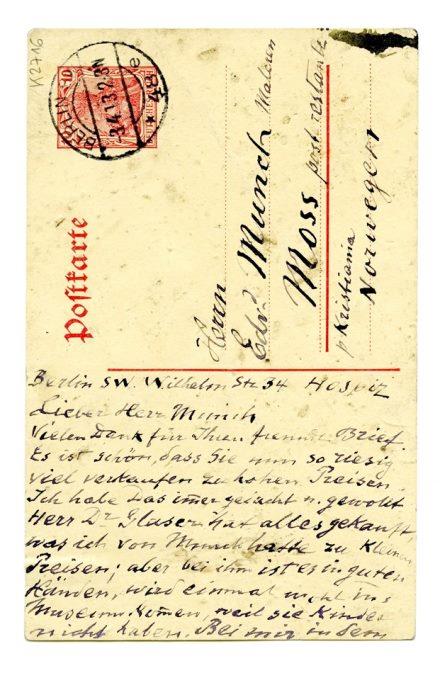 K2716
10
BERLIN
3.4.13.2-3N
* 48 e
Postkarte
Herrn
Edv. Munch Maleren
Moss post restante
p Kristiania
Norwegen
Berlin SW. Wilhelm Str 34 Hospiz
Lieber Herr Munch
Vielen Dank für Ihren freundl. Brief
Es ist schön, dass Sie nun so riesig
viel verkaufen zu hohen Preisen.
Ich habe das immer gedacht u. gewollt
Herr Dr Glaser hat alles gekauft,
was ich von Munch hatte zu kleinen
Preisen; aber bei ihm ist es in guten
Händen, wird einmal wohl ins
Museum komen, weil sie Kinder
nicht haben. Bei mir in dem